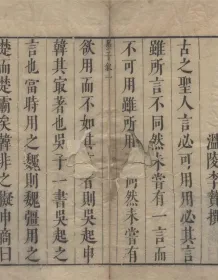 溫陵李贄撰
古之聖人言必可用用必其言
雖所言不同然未嘗有一言而
不可用雖所用不同然未嘗有
欲用而不如其言者則吳起申
韓其最著也吳子一書吳起之
言也當時用之魏則魏彊用之
楚而楚霸矣韓非之擬申商曰